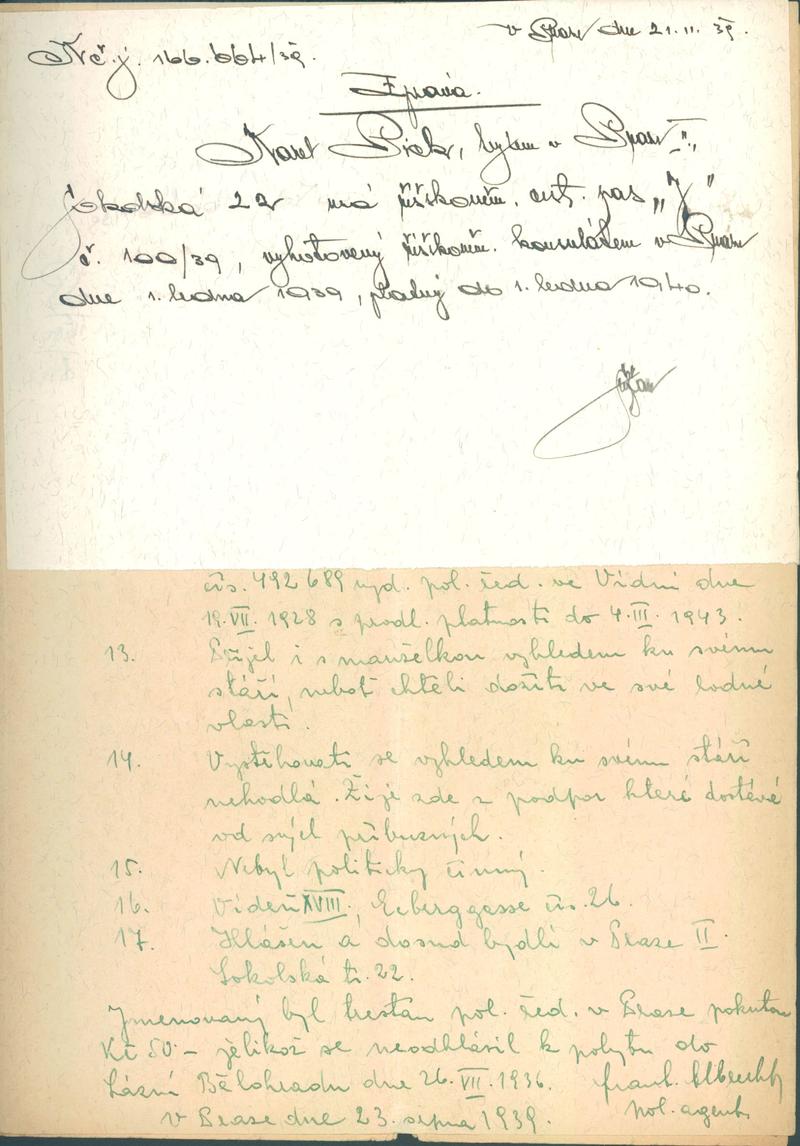 v Praze dne 21.11.39.
č.j. 166.664/39.
Zpráva.
Karel Pick, bytem v Praze II.,
Sokolská 22 má říškoněm. cest. pas „J"
č. 100/39, vyhotovený říškoněm. konsulátem v Praze
dne 1. ledna 1939, platný do 1. ledna 1940.
čís. 492689 vyd. pol. řed. ve Vídni dne
19.VII. 1928 s prodl. platnosti do 4.III. 1943.
13. Přijel i s manželkou vzhledem ku svému
stáří, neboť chtěli dožíti ve své rodné
vlasti.
14. Vystěhovati se vzhledem ku svému stáří
nehodlá. Žije zde z podpor které dostává
od svých příbuzných.
15. Nebyl politicky činný.
16. Vídeň XVIII., čís. 26.
17. Hlášen a dosud bydlí v Praze II.
Sokolská tř. 22.
Jmenovaný byl trestán pol. řed. v Praze pokutou
Kč 50.- jelikož se neodhlásil k pobytu do
Lázní Bělohradu dne 26.VII.1936. frant. Albrecht
v Praze dne 23. srpna 1939. pol. agent.